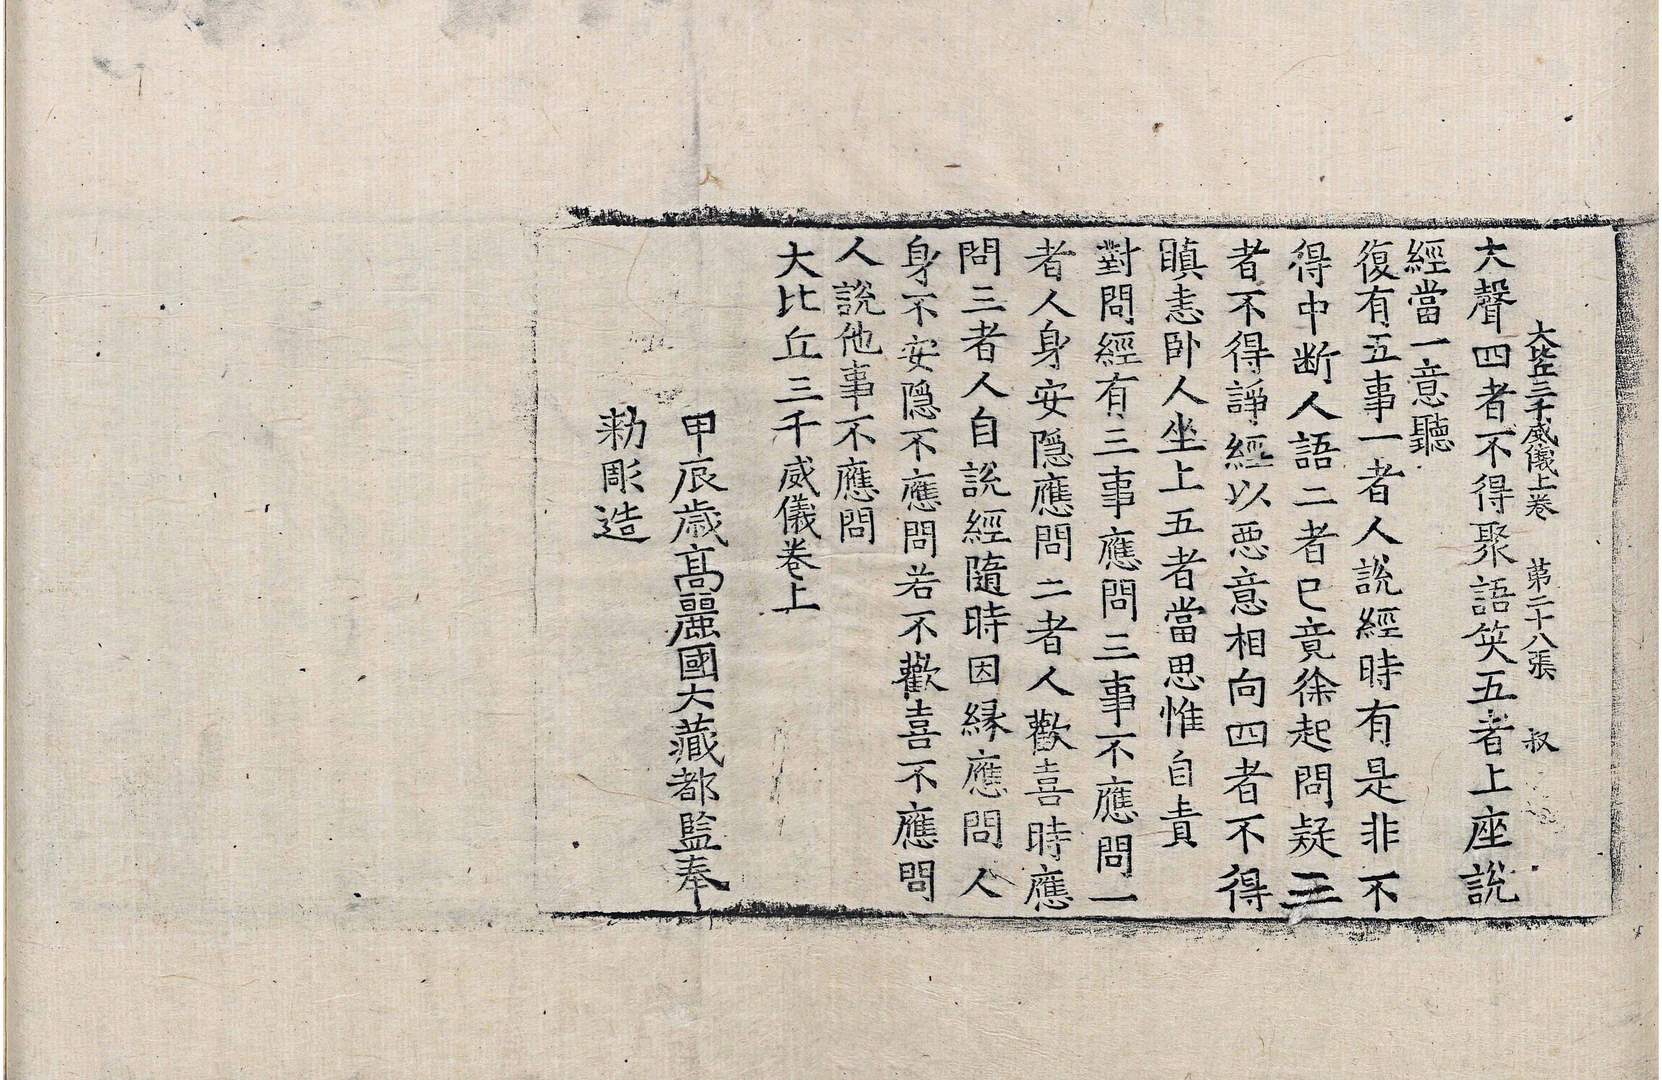 大比丘三千威儀上卷 第二十八張 叔
大聲四者不得聚語笑五者上座說
經當一意聽
復有五事一者人說經時有是非不
得中断人語二者已竟徐起問疑三
者不得諍經以惡意相向四者不得
瞋恚卧人坐上五者當思惟自責
對問經有三事應問三事不應問一
者人身安隱應問二者人歡喜時應
問三者人自說經隨時因緣應問人
身不安隱不應問若不歡喜不應問
人說他事不應問
大比丘三千威儀卷上
甲辰歲高麗國大藏都監奉
勑彫造